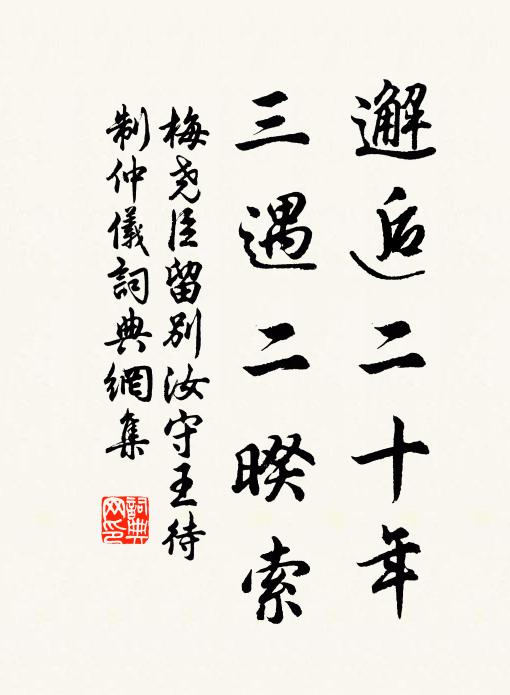 邂逅二十年
三遇二暌索
梅尧臣留别汝守王待
制仲儀詞典網集
詞典
网印